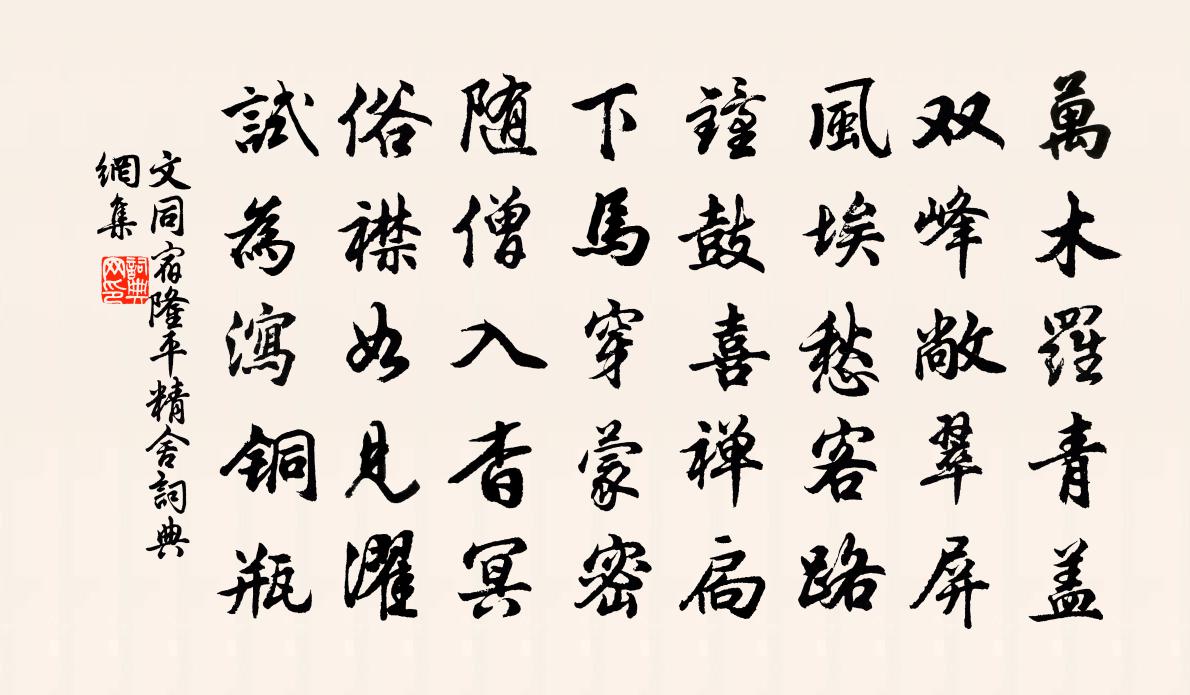 萬木羅青盖
双峰敞翠屏
風埃愁客路
鐘鼓喜禅扃
下馬穿蒙密
随僧入杳冥
俗襟如見濯
試為瀉銅瓶
文同宿隆平精舍詞典
網集
詞典網印